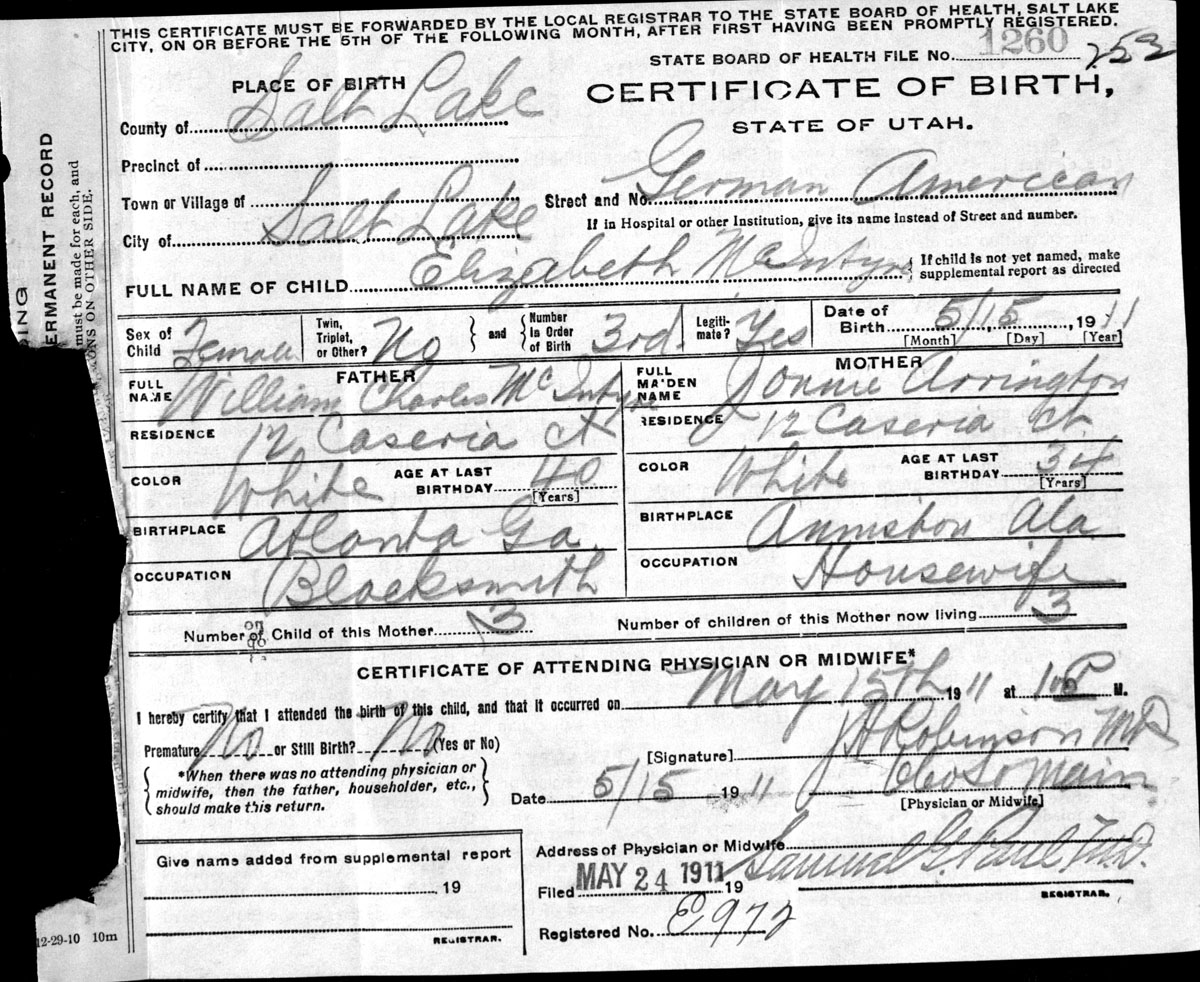 THIS CERTIFICATE MUST BE FORWARDED BY THE LOCAL REGISTRAR TO THE STATE BOARD OF HEALTH, SALT LAKE
CITY, ON OR BEFORE THE 5TH OF THE FOLLOWING MONTH, AFTER FIRST HAVING BEEN PROMPTLY REGISTERED.
STATE BOARD OF HEALTH FILE No. 1260 253
PLACE OF BIRTH
CERTIFICATE OF BIRTH,
STATE OF UTAH.
County of Salt Lake
Precinct of
Town or Village of
Street and No. German American
If in Hospital or other Institution, give its name instead of Street and number.
City of Salt Lake
FULL NAME OF CHILD Elizabeth McIntyre { If child is not yet named, make
supplemental report as directed
Sex of Child Female
Twin, Triplet, or Other? No } and { Number In Order of Birth 3rd
Legiti-mate? Yes
Date of Birth 5/15, 1911
[Month] [Day] [Year]
FATHER
FULL NAME William Charles McIntyre
RESIDENCE 12 Caseria ct
COLOR White AGE AT LAST BIRTHDAY 40 [Years]
BIRTHPLACE Atlanta Ga
OCCUPATION Blacksmith
MOTHER
FULL MAIDEN NAME Donnie Arrington
RESIDENCE 12 Caseria ct.
COLOR White AGE AT LAST BIRTHDAY 34 [Years]
BIRTHPLACE Anniston Ala
OCCUPATION Housewife
Number of Child of this Mother 3 Number of children of this Mother now living 3
CERTIFICATE OF ATTENDING PHYSICIAN OR MIDWIFE*
I hereby certify that I attended the birth of this child, and that it occurred on May 15th 1911 at P M.
Premature No or Still Birth? No (Yes or No)
[Signature] Robinson MD
{ *When there was no attending physician or
midwife, then the father, householder, etc.,
should make this return. }
Date 5/15 1911 Main
[Physician or Midwife]
Give name added from supplemental report
19
REGISTRAR.
Address of Physician or Midwife
Filed MAY 24 1911 19 Samuel G. Paul M.D.
REGISTRAR.
Registered No. E972
12-29-10 10m
ERMANENT RECORD
must be made for each, and
ONS ON OTHER SIDE.